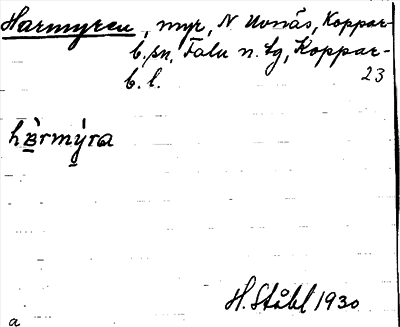 Harmyren, myr, N Uvnäs, Koppar-
b. sn, Falu n. tg, Koppar-
b. l.
23
hàrmýra
H. Ståhl 1930
a